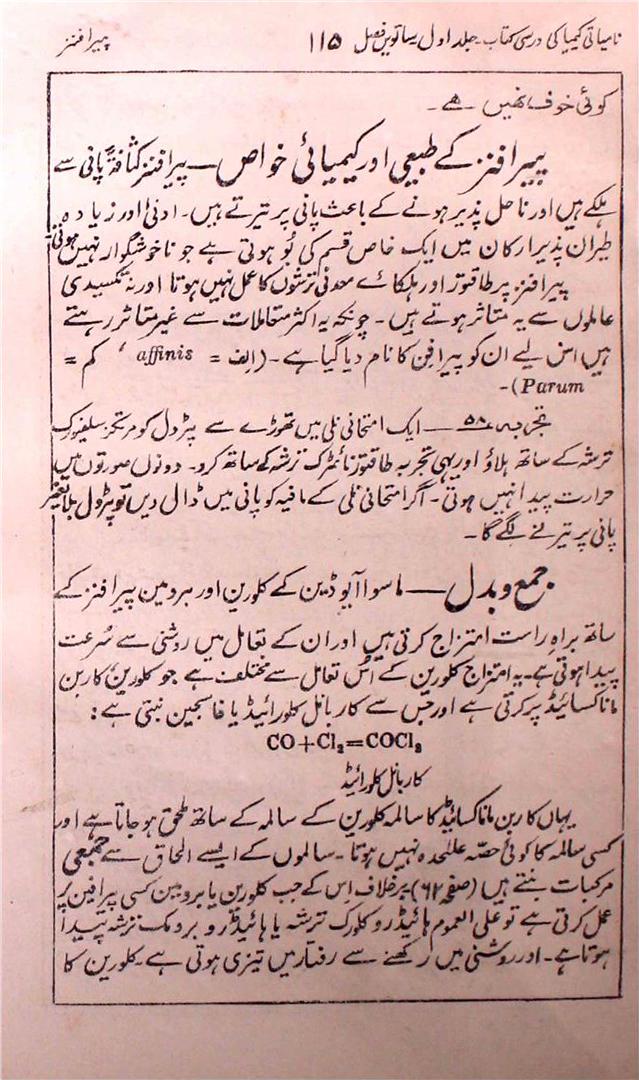 نامیاتی کیمیا کی درسی کتاب۔ جلد اول۔ ساتویں فصل ۱۱۵ پیرافنز
کوئی خوف نہیں ہے۔
پیرافنز کے طبیعی اور کیمیائی خواص — پیرافنز کثافۃً پانی سے
ہلکے ہیں اور ناحل پذیر ہونے کے باعث پانی پر تیرتے ہیں۔ ادنیٰ اور زیادہ
طیران پذیر ارکان میں ایک خاص قسم کی بُو ہوتی ہے جو ناخوشگوار نہیں ہوتی۔
پیرافنز پر طاقتور اور ہلکائے معدنی ترشوں کا عمل نہیں ہوتا اور نہ تکسیدی
عاملوں سے یہ متاثر ہوتے ہیں۔ چونکہ یہ اکثر متعاملات سے غیر متاثر رہتے
ہیں اس لیے ان کو پیرافن کا نام دیا گیا ہے۔ (الف = affinis ، کم =
Parum)۔
تجربہ ۵۸ — ایک امتحانی نلی میں تھوڑے سے پٹرول کو مرتکز سلفیورک
ترشہ کے ساتھ ہلاؤ اور یہی تجربہ طاقتور نائٹرک ترشہ کے ساتھ کرو۔ دونوں صورتوں میں
حرارت پیدا نہیں ہوتی۔ اگر امتحانی نلی کے مافیہ کو پانی میں ڈال دیں تو پٹرول بلا تغیر
پانی پر تیرنے لگے گا۔
جمع و بدل — ماسوا آیوڈین کے کلورین اور برومین پیرافنز کے
ساتھ براہِ راست امتزاج کرتی ہیں اور ان کے تعامل میں روشنی سے سُرعت
پیدا ہوتی ہے۔ یہ امتزاج کلورین کے اُس تعامل سے مختلف ہے جو کلورین، کاربن
مانا کسائیڈ پر کرتی ہے اور جس سے کاربانل کلورائیڈ یا فاسجین بنتی ہے:
CO+Cl₂=COCl₂
کاربانل کلورائیڈ
یہاں کاربن مانا کسائیڈ کا سالمہ کلورین کے سالمہ کے ساتھ ملحق ہو جاتا ہے اور
کسی سالمہ کا کوئی حصّہ علٰحدہ نہیں ہوتا۔ سالموں کے ایسے الحاق سے جمعی
مرکبات بنتے ہیں (صفحہ ۶۲) برخلاف اِس کے جب کلورین یا برومین کسی پیرافین پر
عمل کرتی ہے تو علی العموم ہائیڈروکلورک ترشہ یا ہائیڈروبرومک ترشہ پیدا
ہوتا ہے۔ اور روشنی میں رکھنے سے رفتار میں تیزی ہوتی ہے۔ کلورین کا